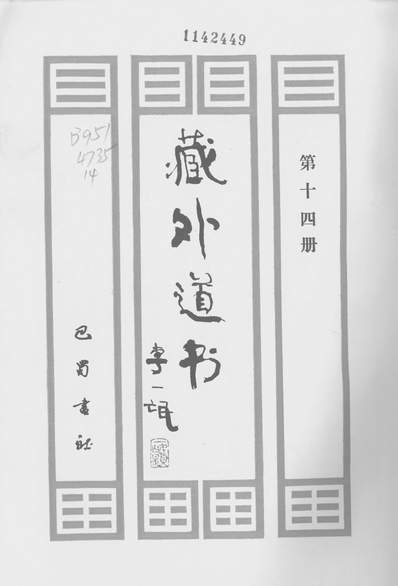 1142449
第十四册
藏外道书
李一氓
B951
4735
14
巴蜀书社